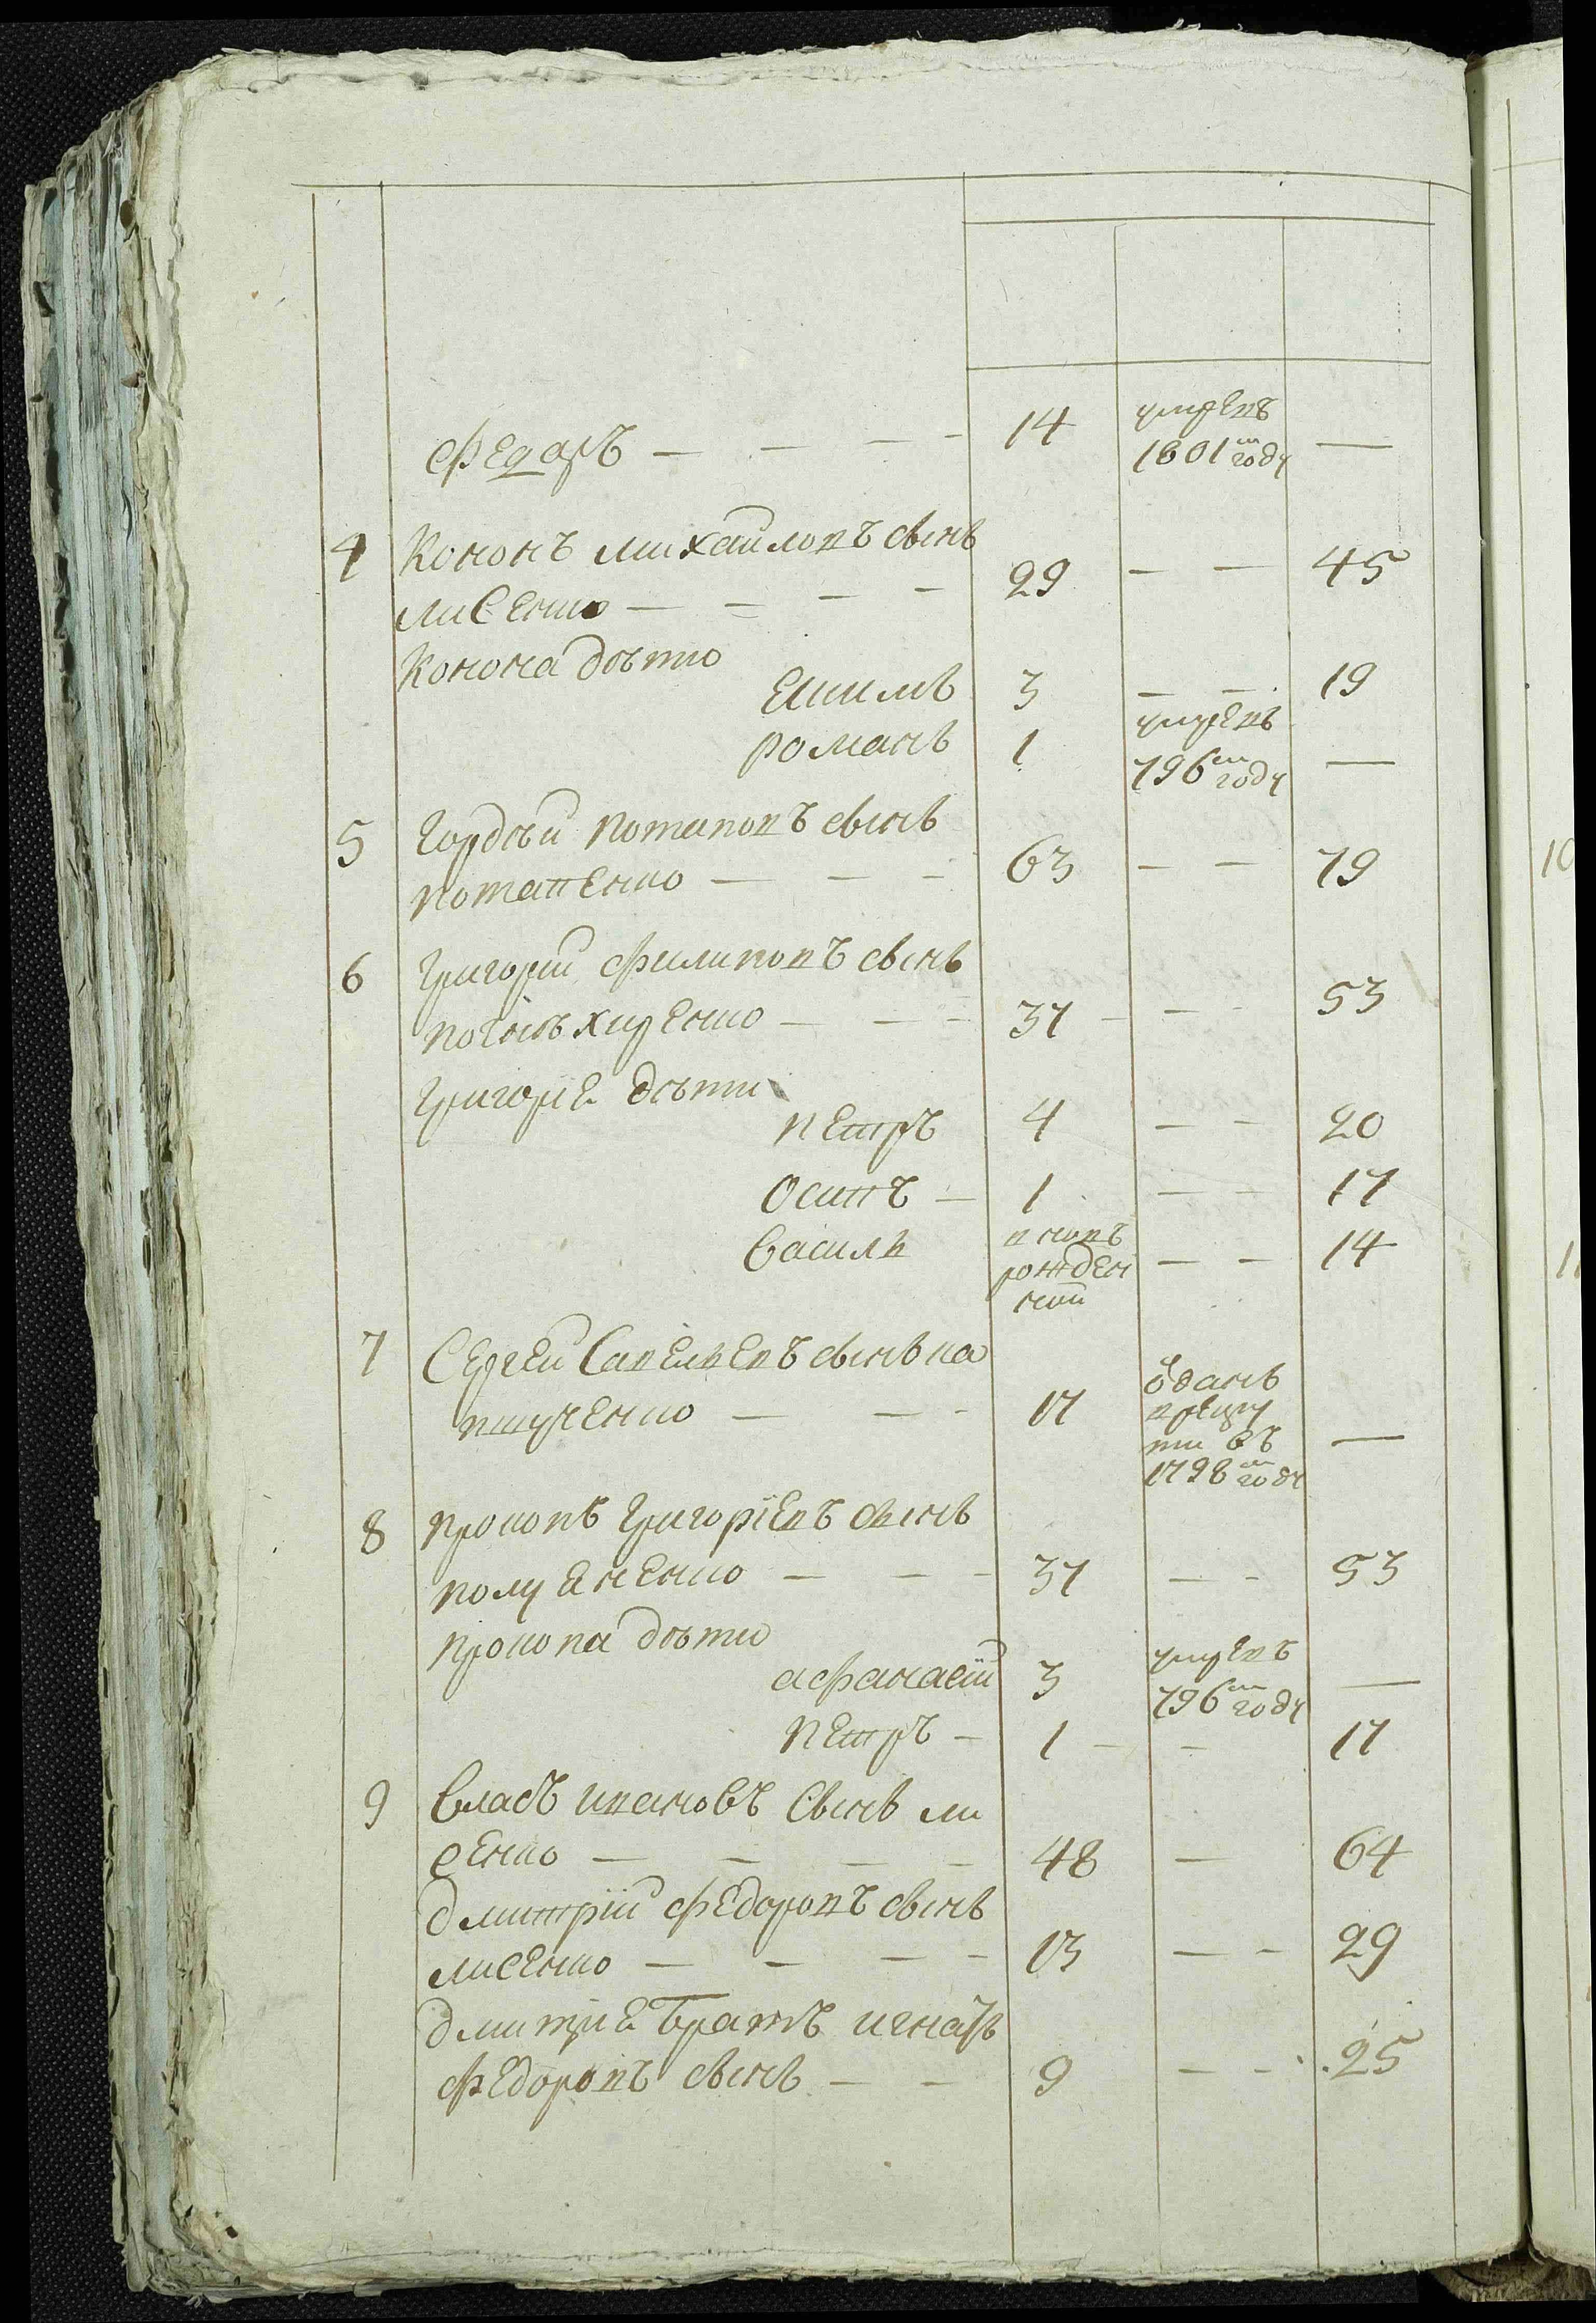 Федаръ — — — — 14 умре въ —
1801м году
4 Кононъ михайловъ сынъ
лисенко — — — — 29 — — 45
Конона дѣти
Екимъ 3 — — 19
романъ 1 умре въ —
796м году
5 Гордѣй потаповъ сынъ
потапенко — — — 63 — — 79
6 Григорий филиповъ сынъ
37 — — 53
Григорiя дѣти
петръ 4 — — 20
Осипъ — 1 — — 17
Василь вновь — — 14
рожден
ной
7 Сергей Савельевъ сынъ ка
птученко — — — 17 ѿданъ —
в рекру
ти въ
1798м году
8 прокопъ Григорiевъ сынъ
полуяненко — — — 37 — — 53
прокопа дѣти
афанасiй 3 умре въ —
796м году
петръ — 1 — — 17
9 Власъ ивановъ сынъ ли
сенко — — — — 48 — 64
дмитрiй федоровъ сынъ
лисенко — — — — 13 — — 29
дмитрия братъ игнатъ
федоровъ сынъ — — 9 — — 25
10